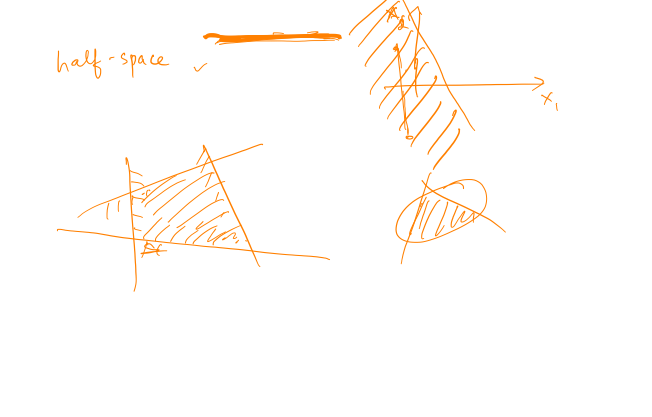 half-space ✓
x₁